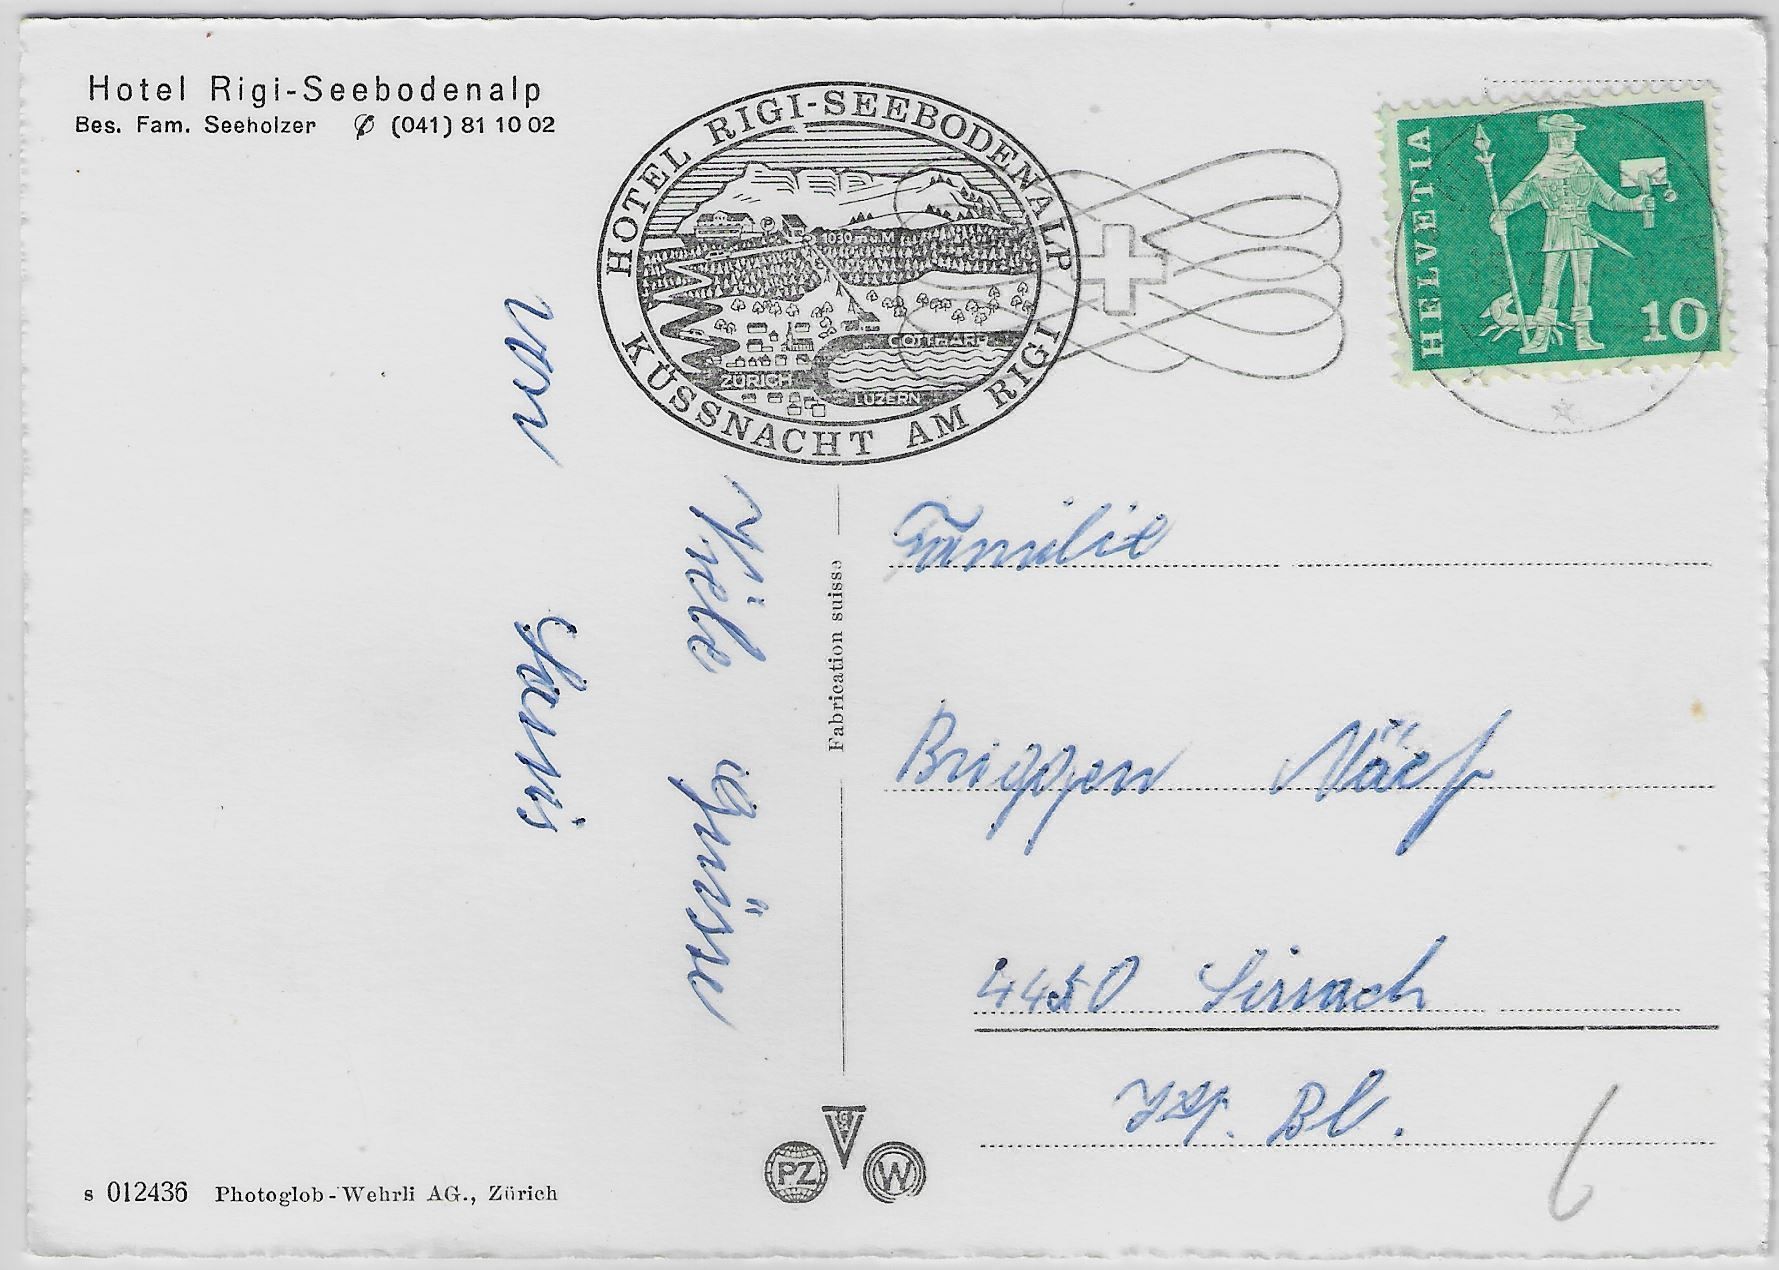 Hotel Rigi-Seebodenalp
Bes. Fam. Seeholzer (041) 81 10 02
HOTEL RIGI-SEEBODENALP
KÜSSNACHT AM RIGI
1030 m ü. M
GOTTHARD
ZÜRICH
LUZERN
HELVETIA
10
Viele Grüsse
von
Fabrication suisse
Familie
Briggen Näef
4450 Sissach
Bl.
PZ
W
s 012436 Photoglob-Wehrli AG., Zürich
6